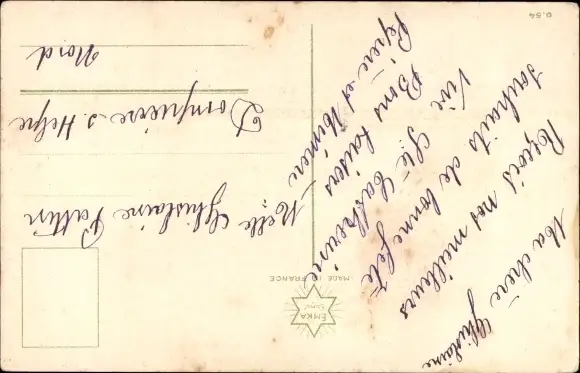 Ma chère Ghislaine
Reçois nos meilleurs
souhaits de bonne fête
Vive Ste Catherine
Bons baisers
Pépère et Mémère
Melle Ghislaine Pattin
Dompierre s. Helpe
Nord
EMKA
MADE IN FRANCE
0.54